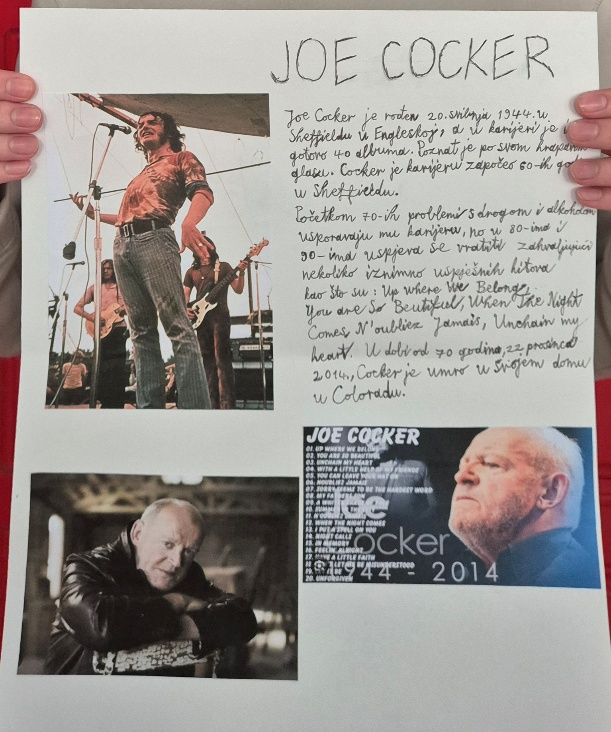 JOE COCKER
Joe Cocker je rođen 20. svibnja 1944. u
Sheffieldu u Engleskoj, a u karijeri je i
gotovo 40 albuma. Poznat je po svom hrapavom
glasu. Cocker je karijeru započeo 60-ih go
u Sheffieldu.
Početkom 70-ih problemi s drogom i alkoholom
usporavaju mu karijeru, no u 80-ima i
90-ima uspjeva se vratiti zahvaljujući
nekoliko iznimno uspješnih hitova
kao što su: Up where We Belong,
You are So Beutiful, When The Night
Comes N'oubliez Jamais, Unchain my
heart. U dobi od 70 godina, 22. prosinca
2014., Cocker je umro u svojem domu
u Coloradu.
JOE COCKER
01. UP WHERE WE BELONG
02. YOU ARE SO BEAUTIFUL
03. UNCHAIN MY HEART
04. WITH A LITTLE HELP MY FRIENDS
05. YOU CAN LEAVE YOUR HAT ON
06. NOUBLIEZ JAMAIS
07. SORRY SEEMS TO BE THE HARDEST WORD
08. MY FATHER
09. A
10. SUMMER
11. N'OUBLIEZ
12. WHEN THE NIGHT COMES
13. I PUT A SPELL ON YOU
14. NIGHT CALLS
15. IN MEMORY
16. FEELIN' ALRIGHT
17. HAVE A LITTLE FAITH
18. LET ME BE MISUNDERSTOOD
19. IT BE
20. UNFORGIVEN
Joe
Cocker
1944 - 2014